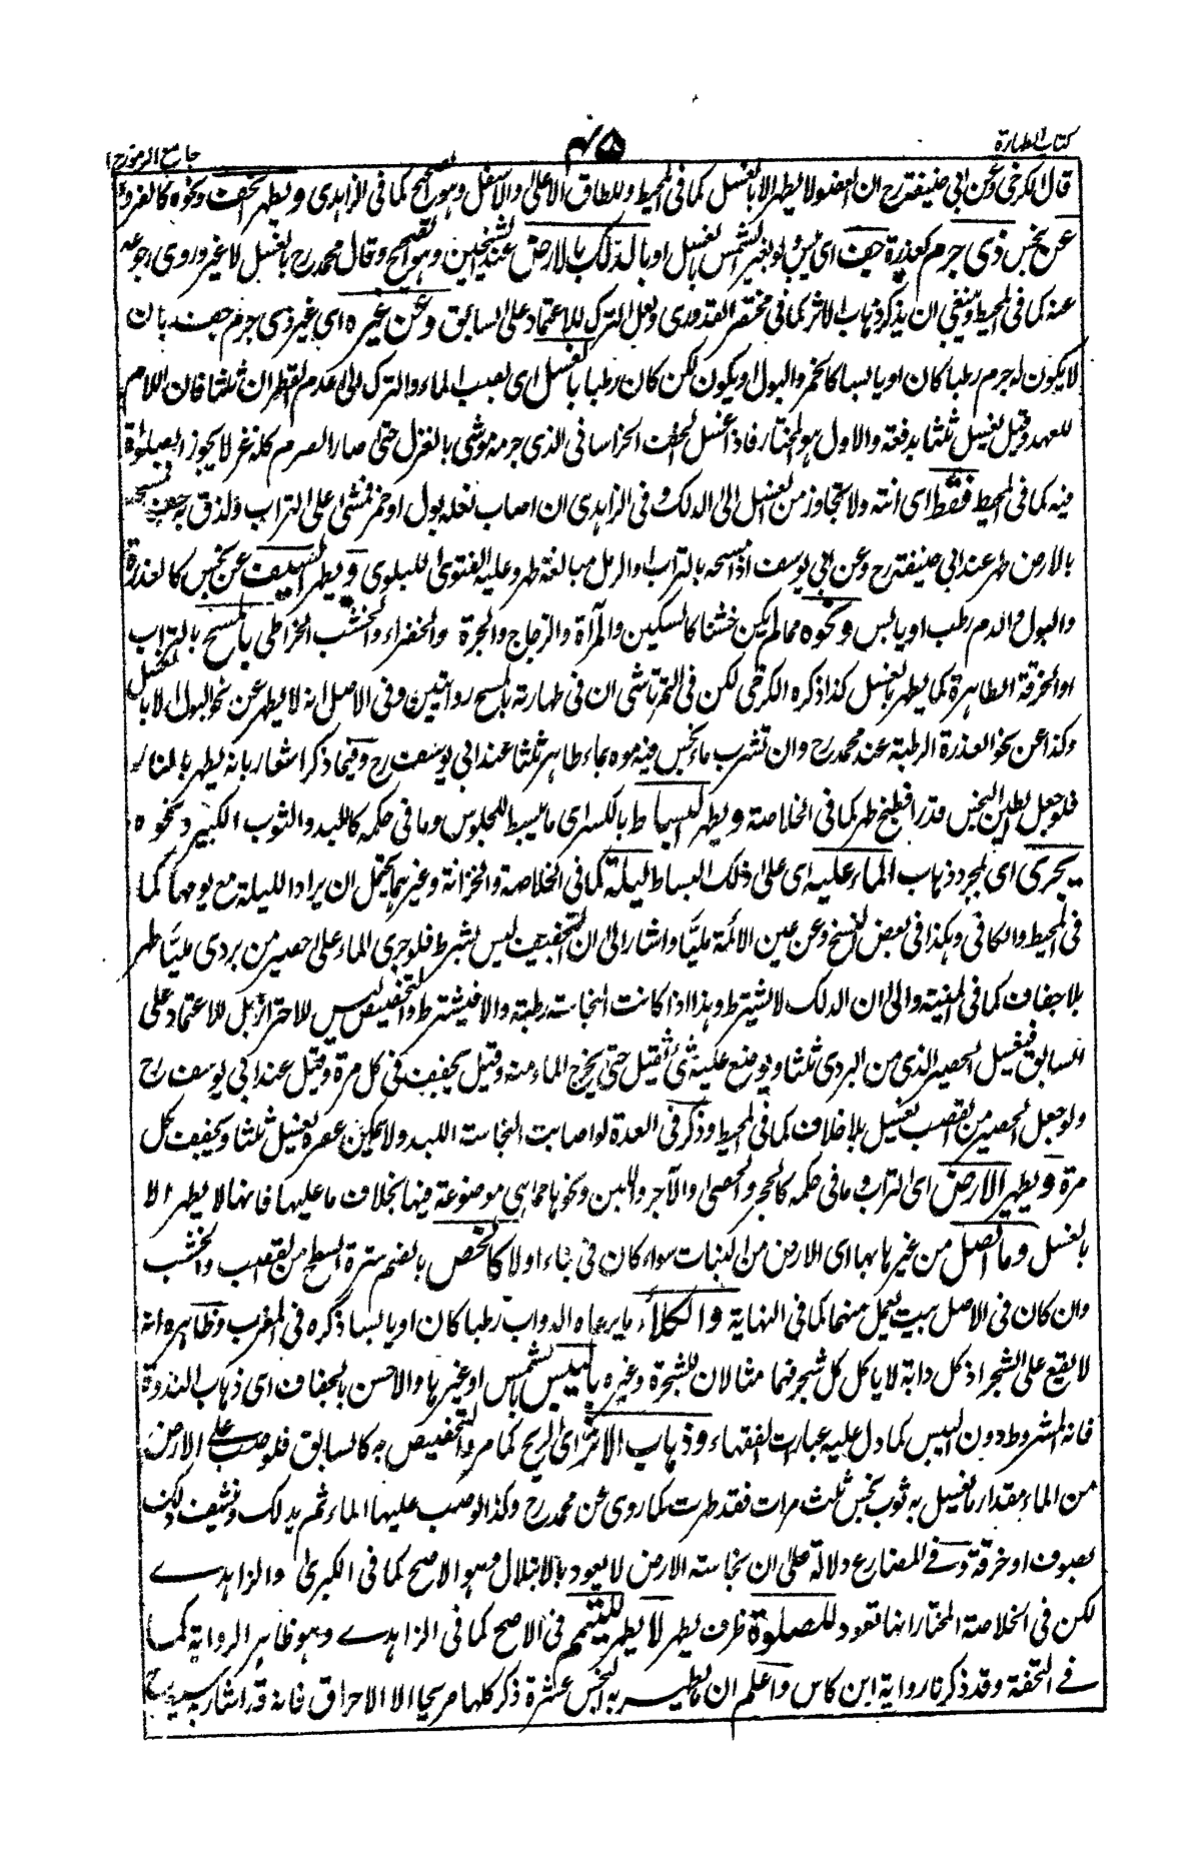 كتاب الطهارة
٥٨
جامع الرموز ج ١
قال الكرخى وعن ابى حنيفة رح ان العضو لا يطهر الا بالغسل كما فى المحيط وللطاق الاعلى والاسفل وهو الصحيح كما فى الزاهدى ويطهر الخف ونحوه كالفرو
عن نجس ذى جرم كعذرة جف اى يبس ولو بغير الشمس بالغسل او بالدلك بالارض عند الشيخين وهو الصحيح وقال محمد رح بالغسل لا غير وروى رجوعه
عنه كما فى المحيط وينبغى ان يذكر ذهاب الاثر كما فى مختصر القدورى ولعل الترك للاعتماد على السابق وعن غيره اى غير ذى جرم جف بان
لا يكون له جرم رطبا كان او يابسا كالخمر والبول او يكون لكن كان رطبا بالغسل اى بصب الماء والترك الى عدم القطران ثلثا فان اللام
للعهد وقيل يغسل ثلثا بدفعة والاول هو المختار فاذا غسل الخف الخراسانى الذى جرمه موشى بالغزل حتى صار الصرم كله غزلا يجوز الصلوة
فيه كما فى المحيط فقط اى انته ولا تتجاوز من الغسل الى الدلك وفى الزاهدى ان اصاب نعله بول او خمر فمشى على التراب ولزق به جف فمسحه
بالارض طهر عند ابى حنيفة رح وعن ابى يوسف اذا مسحه بالتراب والرمل مبالغة طهر وعليه الفتوى للبلوى ويطهر السيف عن نجس كالعذرة
والبول والدم رطب او يابس ونحوه مما لم يكن خشنا كالسكين والمرآة والزجاج والجرة والخضراء والخشب الخراطى بالمسح بالتراب
او الخرقة الطاهرة كما يطهر بالغسل كذا ذكره الكرخى لكن فى التمرتاشى ان فى طهارته بالمسح روايتين وفى الاصل انه لا يطهر عن نحو البول الا بالغسل
وكذا عن نحو العذرة الرطبة عند محمد رح وان تشرب ماء نجس فيموه بماء طاهر ثلثا عند ابى يوسف رح وفيما ذكر اشعار بانه يطهر بالنار
فلو جعل الطين النجس قدرا فطبخ طهر كما فى الخلاصة ويطهر البساط بالكسر اى ما يبسط للجلوس وما فى حكمه كاللبد والثوب الكبير ونحوه
بجرى اى لمجرد ذهاب الماء عليه اى على ذلك البساط ليلة كما فى الخلاصة والخزانة وغيرهما يحتمل ان يراد الليلة مع يومها كما
فى المحيط والكافى وهكذا فى بعض النسخ وعن عين الائمة مليا واشار الى ان التجفيف ليس بشرط فلو جرى الماء على حصير من بردى مليا طهر
بلا جفاف كما فى المنية والى ان الدلك لا يشترط وهذا اذا كانت النجاسة رطبة والا فيشترط والتخصيص ليس للاحتراز بل للاعتماد على
السابق فيغسل الحصير الذى من البردى ثلثا ويوضع عليه شئ ثقيل حتى يخرج الماء منه وقيل يجفف فى كل مرة وقيل عند ابى يوسف رح
ولو جعل الحصير من القصب يغسل بلا خلاف كما فى المحيط وذكر فى العدة لو اصابت النجاسة اللبد ولا يمكن عصره يغسل ثلثا ويجفف بكل
مرة ويطهر الارض اى التراب وما فى حكمه كالحجر والحصى والآجر واللبن ونحوها مما هى موضوعة فيها بخلاف ما عليها فانها لا يطهر الا
بالغسل وما اتصل من غيرها بها اى الارض من النبات سواء كان فى بناء او لا كالخص بالضم سترة السطح من القصب والخشب
وان كان فى الاصل بيت يعمل منهما كما فى النهاية والكلاء ما يرعاه الدواب رطبا كان او يابسا ذكره فى المغرب وظاهره انه
لا يقع على الشجر اذ كل دابة لا ياكل كل شجر فهما مثالان للشجرة وغيره باليبس بالشمس او غيرها والاحسن بالجفاف اى ذهاب الندوة
فانه المشروط دون اليبس كما دل عليه عبارات الفقهاء وذهاب الاثر اى الريح كما مر والتخصيص به كالسابق فلو صب على الارض
من الماء مقدار ما يغسل به ثوب نجس ثلث مرات فقد طهرت كما روى عن محمد رح وكذا لو صب عليها الماء ثم يدلك وينشف ذلك
بصوف او خرقة وفى المضارع دلالة على ان نجاسة الارض لا يعود بالابتلال وهو الاصح كما فى الكبرى والزاهدى
لكن فى الخلاصة المختار انها تعود للصلوة ظرف يطهر لا يطهر للتيمم فى الاصح كما فى الزاهدى وهو ظاهر الرواية كما
فى التحفة وقد ذكرنا رواية ابن كاس واعلم ان ما يطهر به النجس عشرة ذكر كلها صريحا الا الاحراق فانه قد اشار به